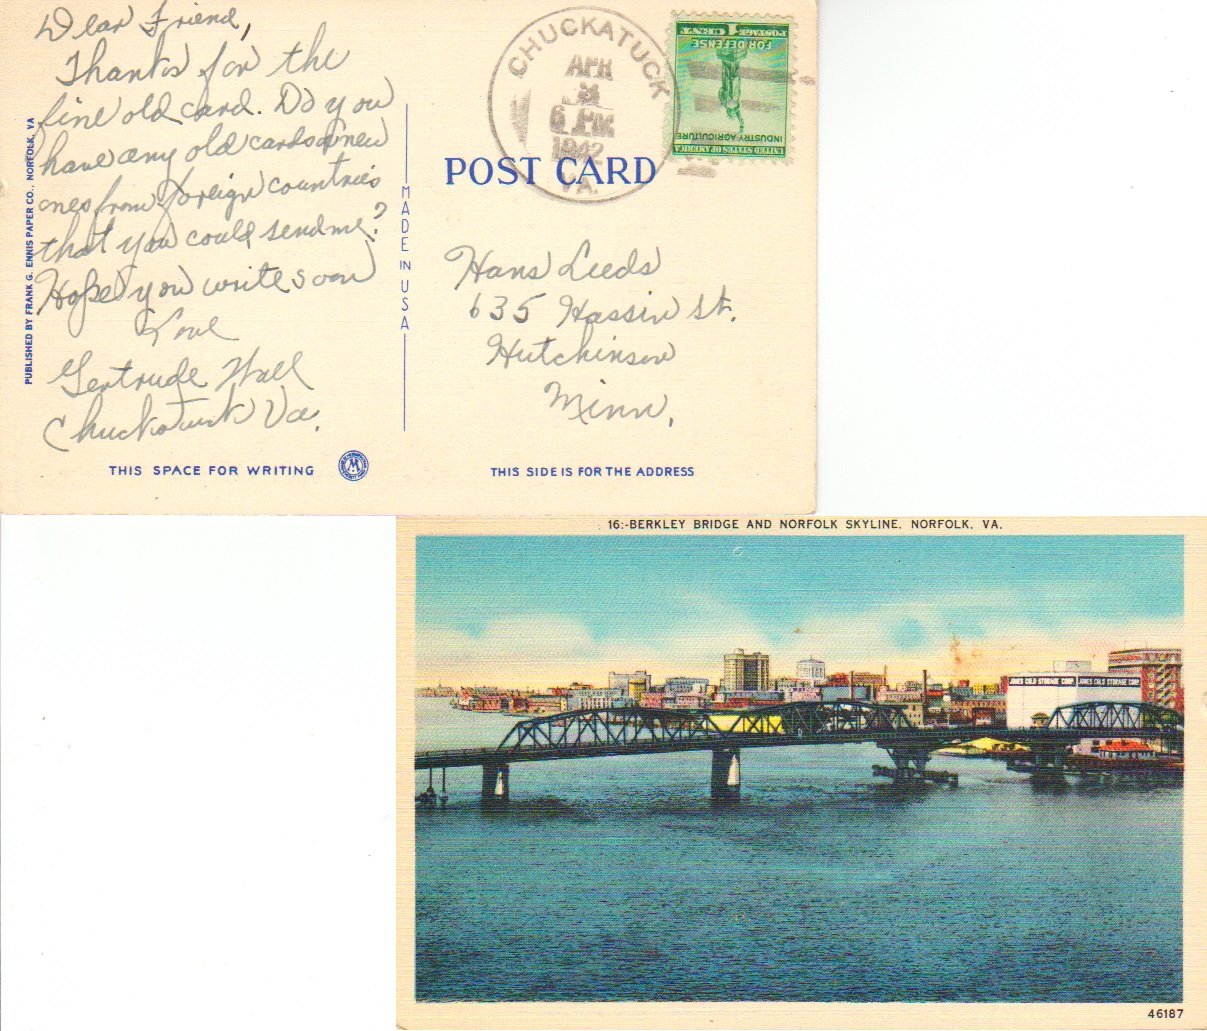 Dear Friend,
Thanks for the
fine old card. Do you
have any old cards or new
ones from foreign countries
that you could send me?
Hope you write soon
Love
Gertrude Hall
Chuckatuck Va.
PUBLISHED BY FRANK G. ENNIS PAPER CO., NORFOLK, VA
THIS SPACE FOR WRITING
MADE IN USA
CHUCKATUCK
APR
6 PM
1942
VA.
UNITED STATES OF AMERICA
INDUSTRY·AGRICULTURE
FOR DEFENSE
POSTAGE 1 CENT
POST CARD
Hans Lueds
635 Hassin St.
Hutchinson
Minn,
THIS SIDE IS FOR THE ADDRESS
16:-BERKLEY BRIDGE AND NORFOLK SKYLINE, NORFOLK, VA.
JONES COLD STORAGE CORP. JONES COLD STORAGE CORP.
46187